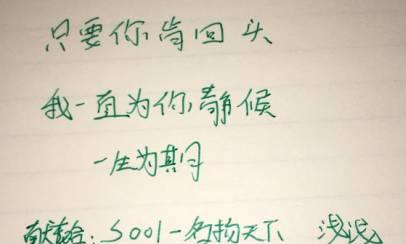 只要你肯回头
我一直为你静候
一生为其月
献给：S001一名物天下 浅浅